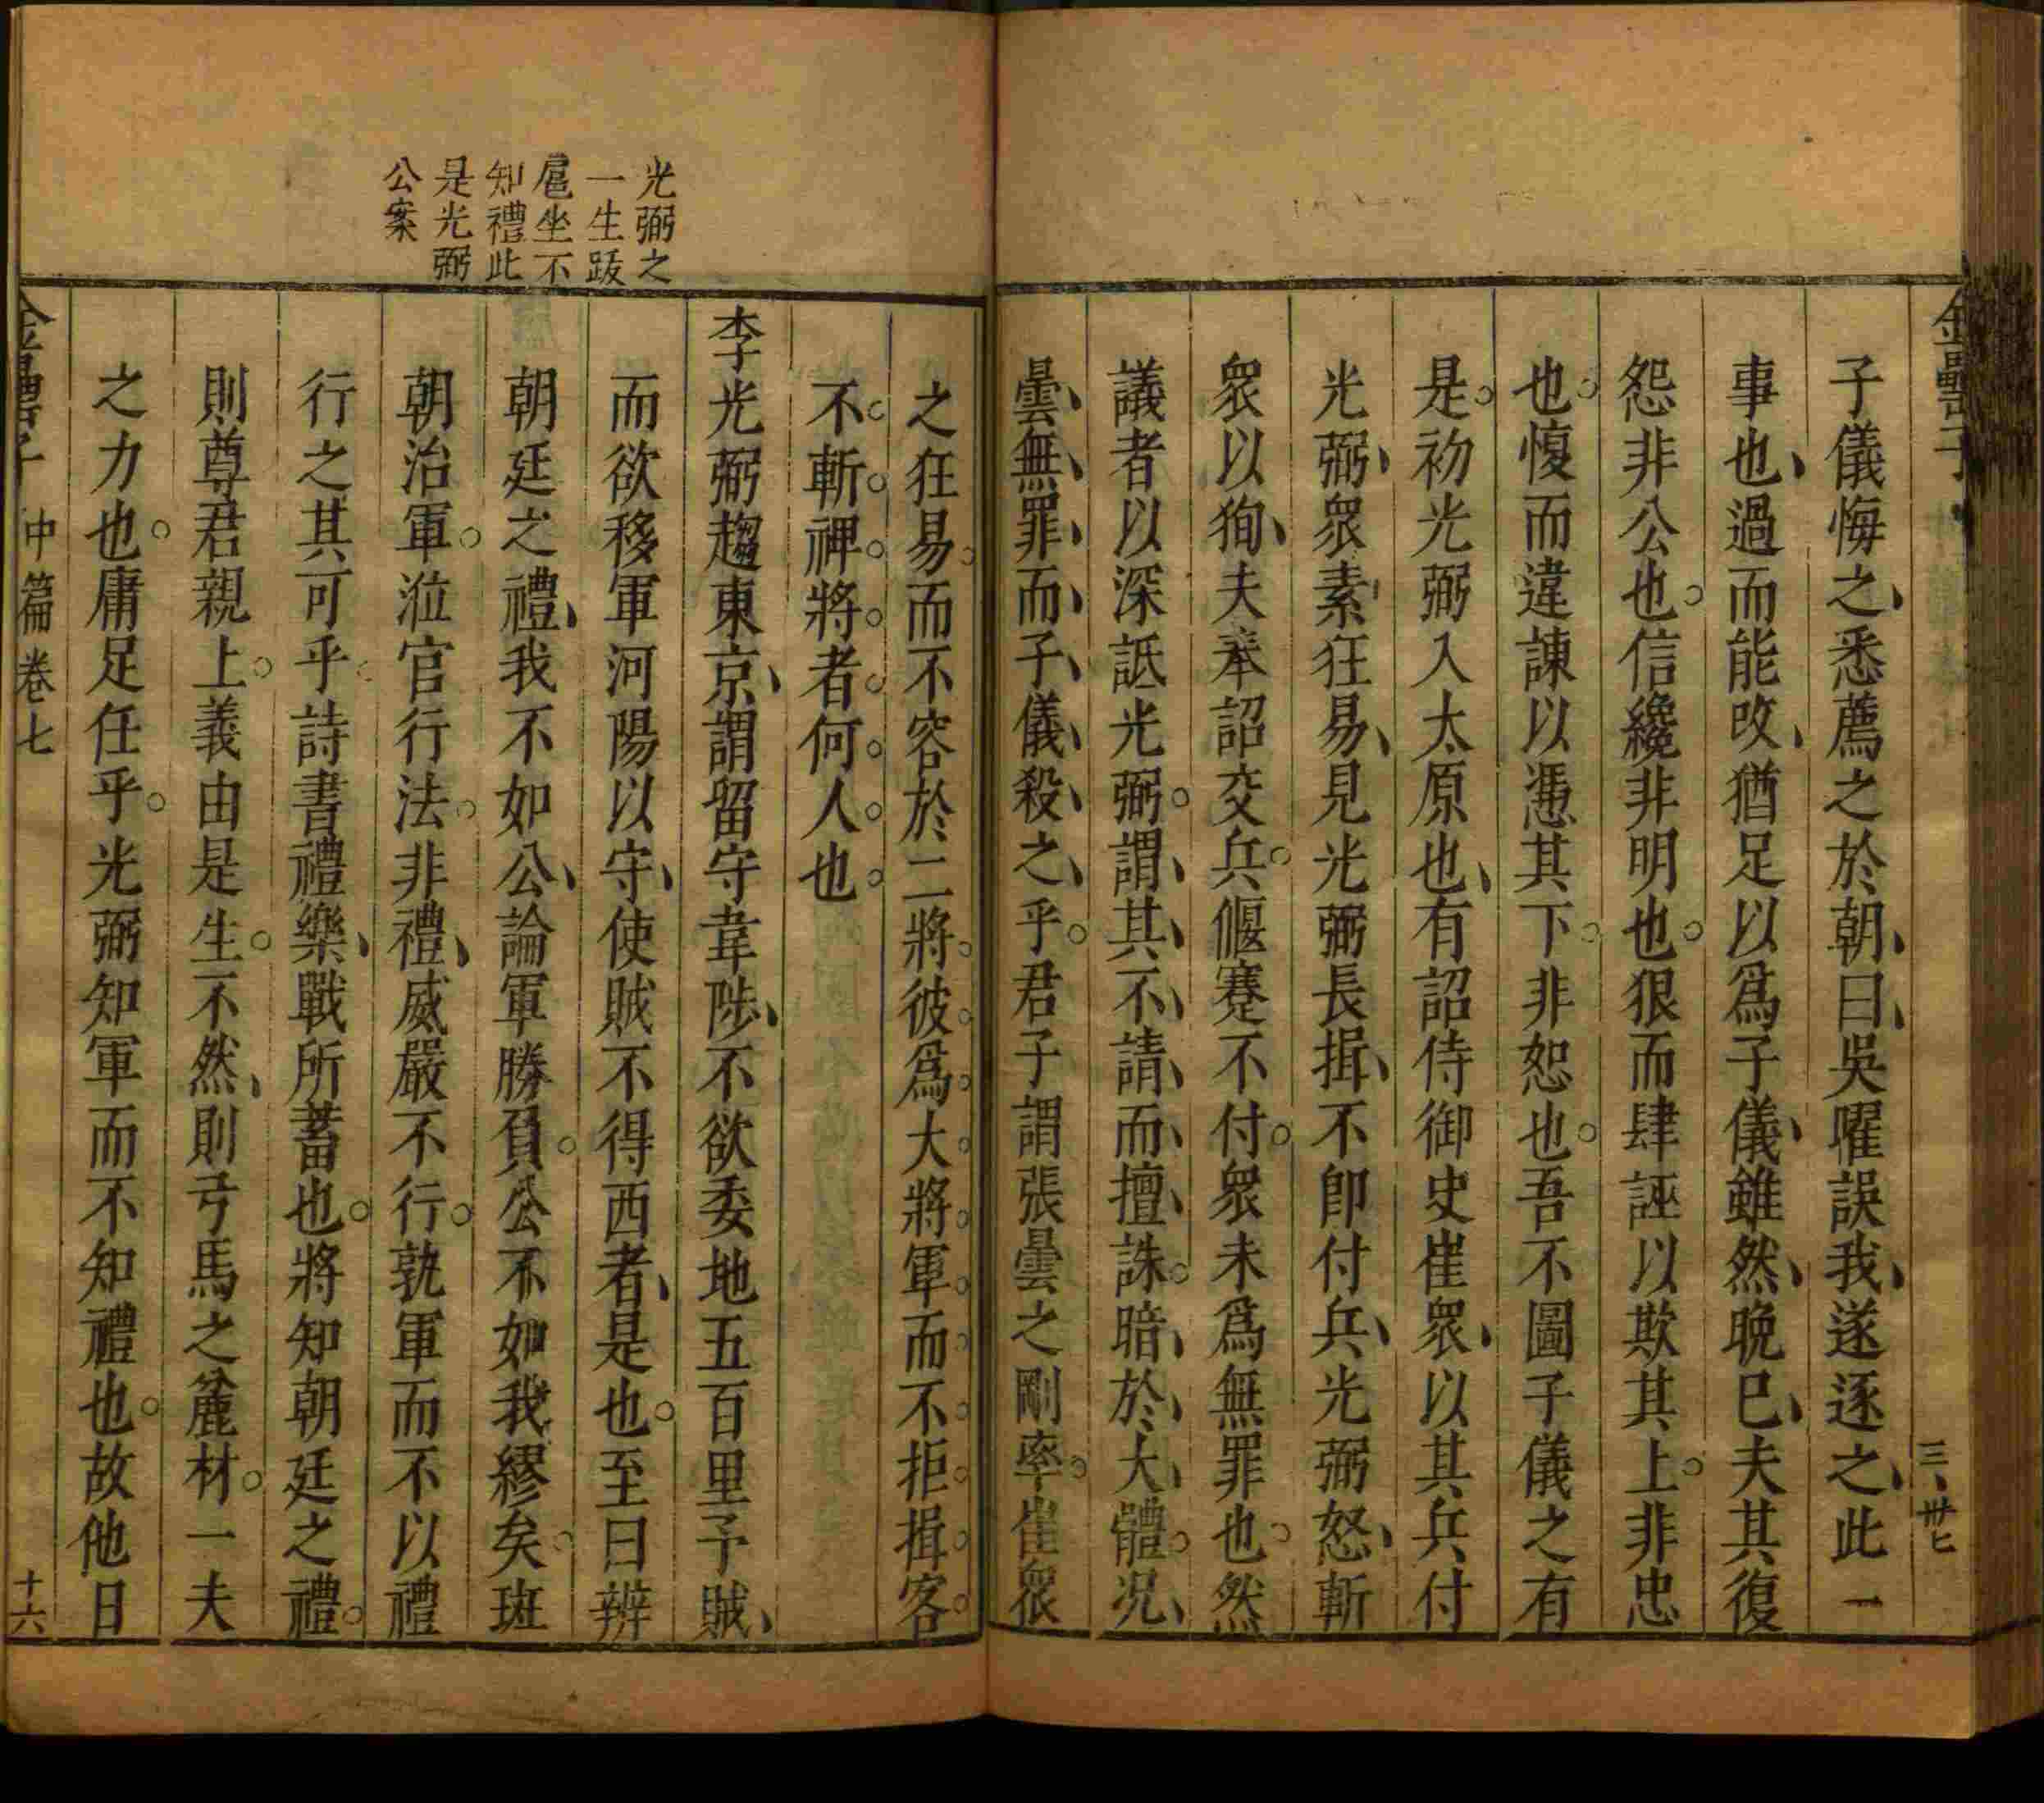 金罍子
三、卅七
子儀悔之悉薦之於朝曰吳曜誤我遂逐之此一
事也過而能改猶足以爲子儀雖然晚已夫其復
怨非公也信纔非明也狠而肆誣以欺其上非忠
也愎而違諫以慿其下非恕也吾不圖子儀之有
是初光弼入太原也有詔侍御史崔衆以其兵付
光弼衆素狂易見光弼長揖不卽付兵光弼怒斬
衆以狥夫奉詔交兵偃蹇不付衆未爲無罪也然
議者以深詆光弼謂其不請而擅誅暗於大體况
曇無罪而子儀殺之乎君子謂張曇之剛率崔衆
之狂易而不容於二將彼爲大將軍而不拒揖客
不斬裨將者何人也
李光弼趨東京謂留守韋陟不欲委地五百里予賊
而欲移軍河陽以守使賊不得西者是也至曰辨
朝廷之禮我不如公論軍勝負公不如我繆矣斑
朝治軍涖官行法非禮威嚴不行孰軍而不以禮
行之其可乎詩書禮樂戰所蓄也將知朝廷之禮
則尊君親上義由是生不然則弓馬之麄材一夫
之力也庸足任乎光弼知軍而不知禮也故他日
光弼之
一生跋
扈坐不
知禮此
是光弼
公案
中篇卷七
十六